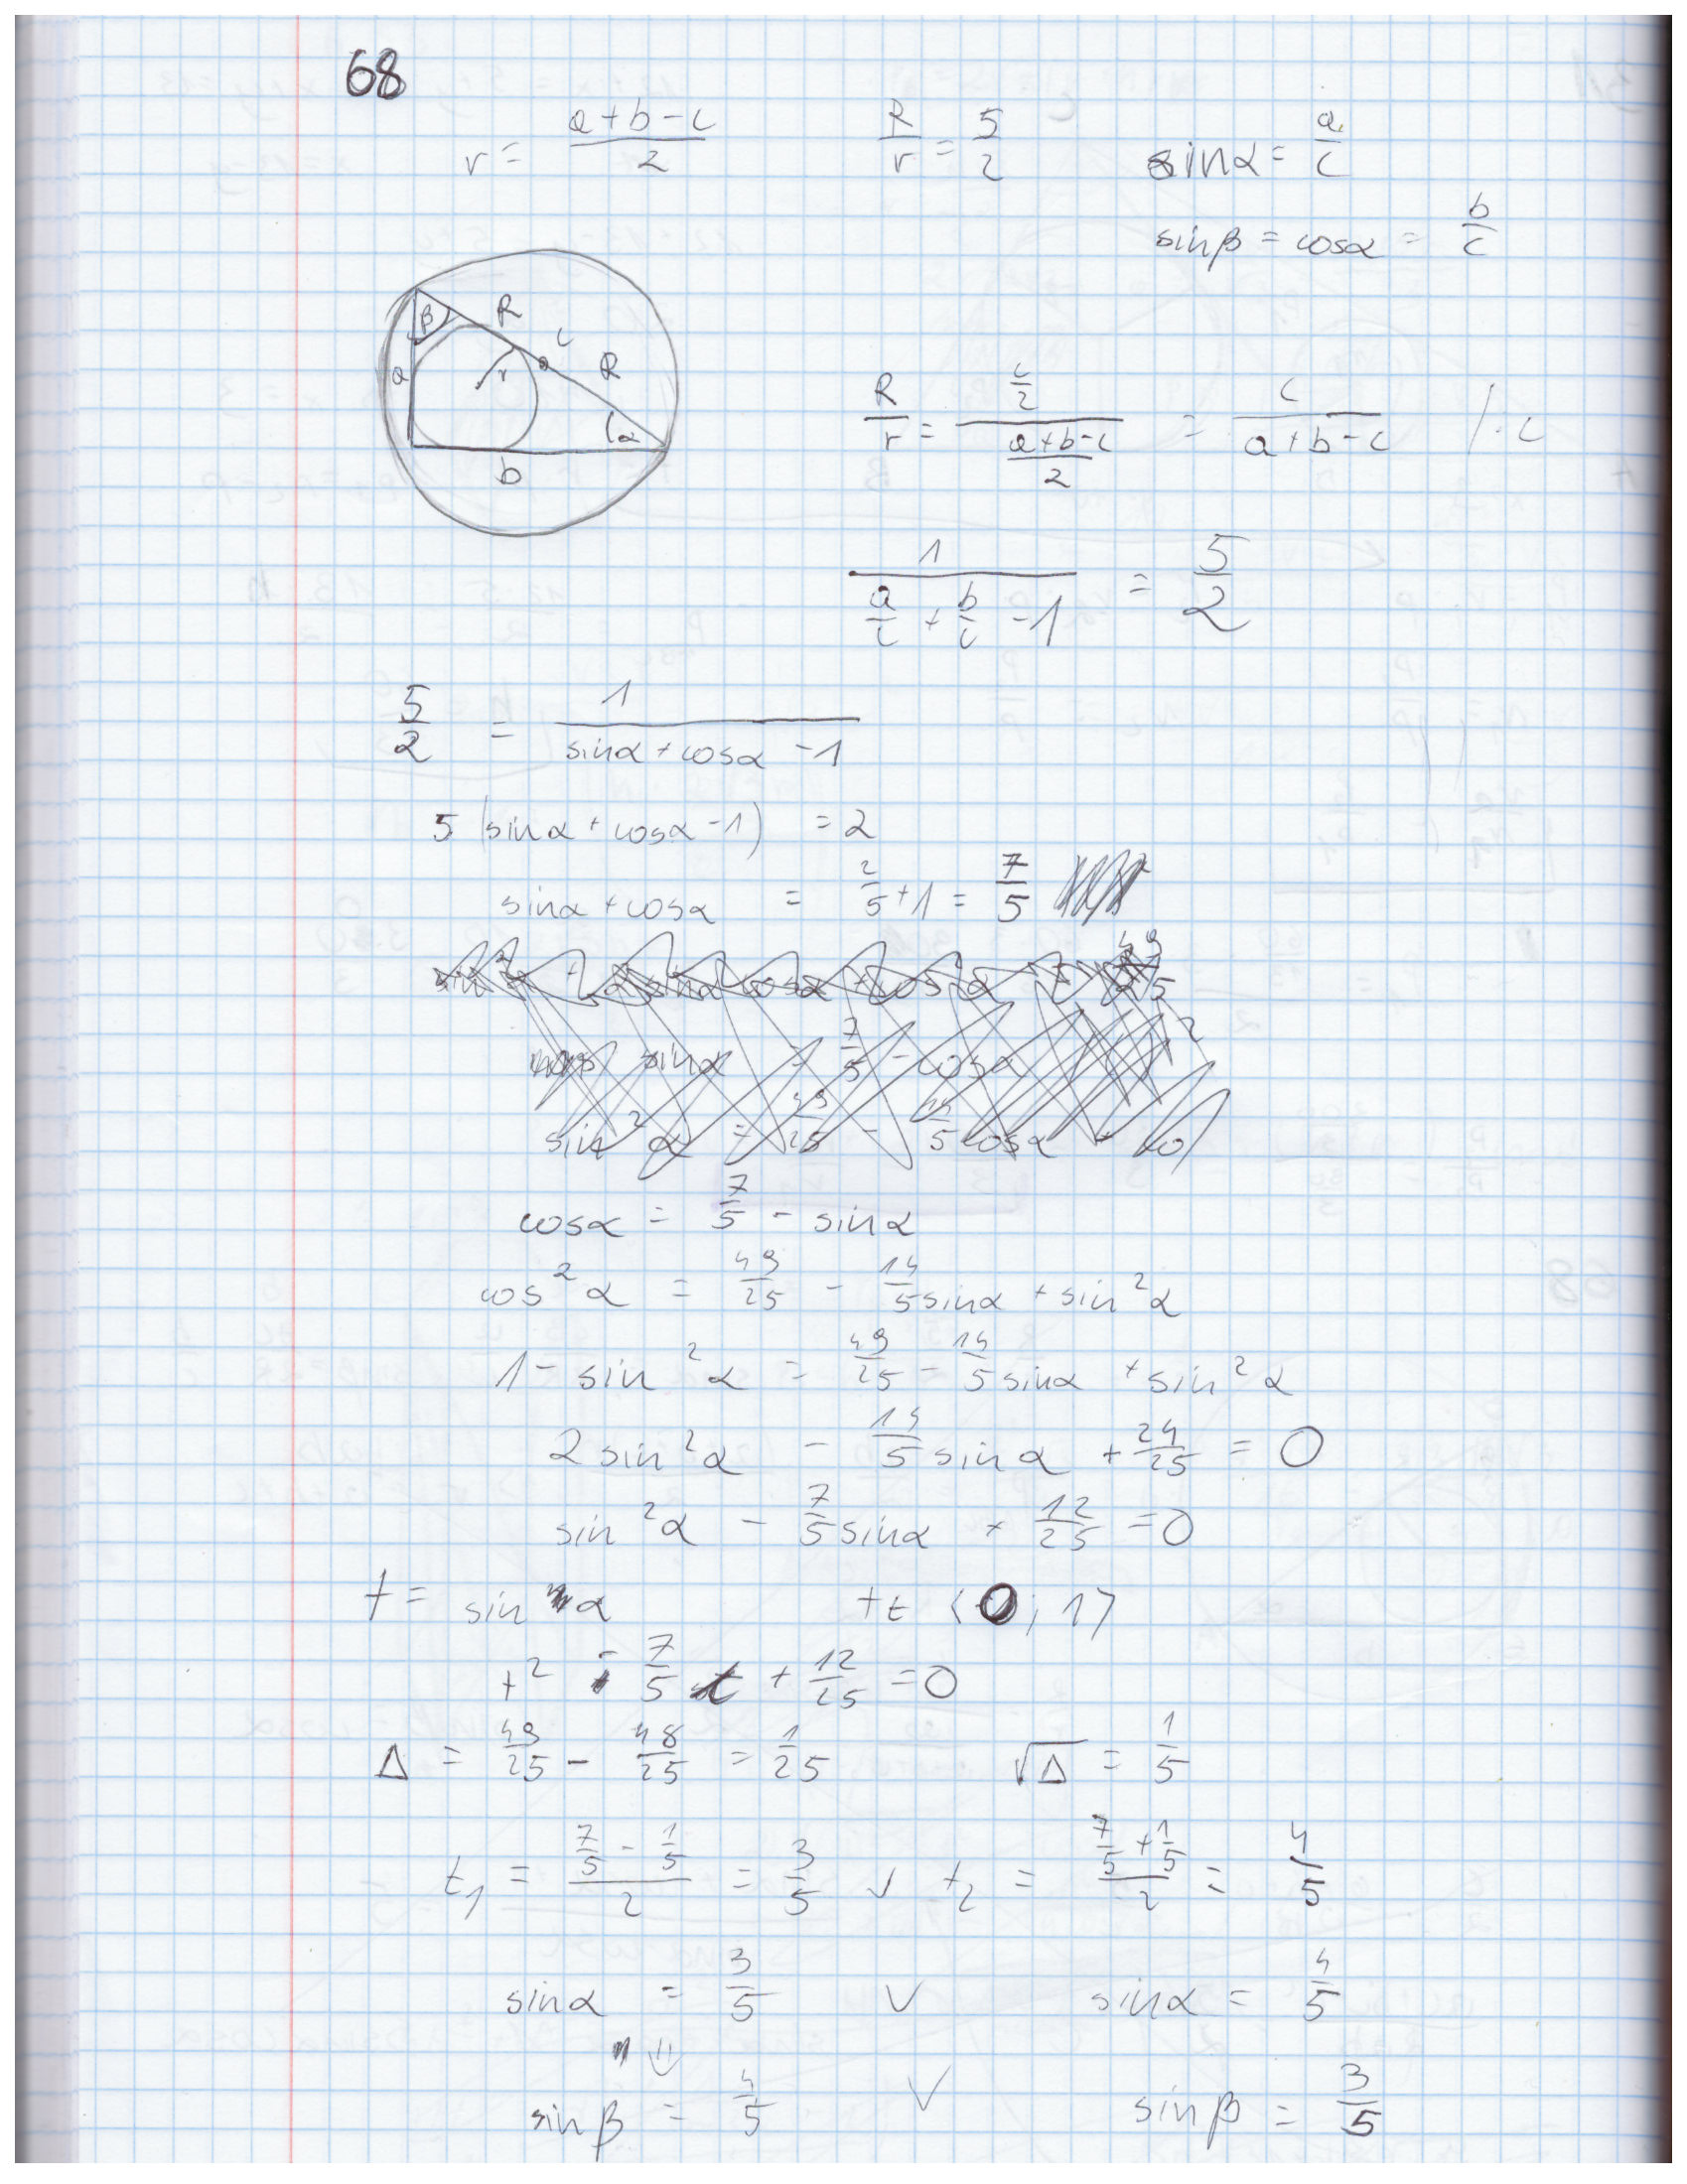 68
r = (a+b-c)/2    R/r = 5/2    sinα = a/c
sinβ = cosα = b/c
β R c a r R α b
R/r = (c/2)/((a+b-c)/2) = c/(a+b-c) /: c
1/(a/c + b/c - 1) = 5/2
5/2 = 1/(sinα + cosα - 1)
5 (sinα + cosα - 1) = 2
sinα + cosα = 2/5 + 1 = 7/5
sinα = 7/5 - cosα
sin²α = 49/25 - 14/5 cosα +
cosα = 7/5 - sinα
cos²α = 49/25 - 14/5 sinα + sin²α
1 - sin²α = 49/25 - 14/5 sinα + sin²α
2 sin²α - 14/5 sinα + 24/25 = 0
sin²α - 7/5 sinα + 12/25 = 0
t = sin α    t ∈ ⟨0; 1⟩
t² - 7/5 t + 12/25 = 0
Δ = 49/25 - 48/25 = 1/25    √Δ = 1/5
t₁ = (7/5 - 1/5)/2 = 3/5 ∨ t₂ = (7/5 + 1/5)/2 = 4/5
sinα = 3/5 ∨ sinα = 4/5
⇓
sinβ = 4/5 ∨ sinβ = 3/5